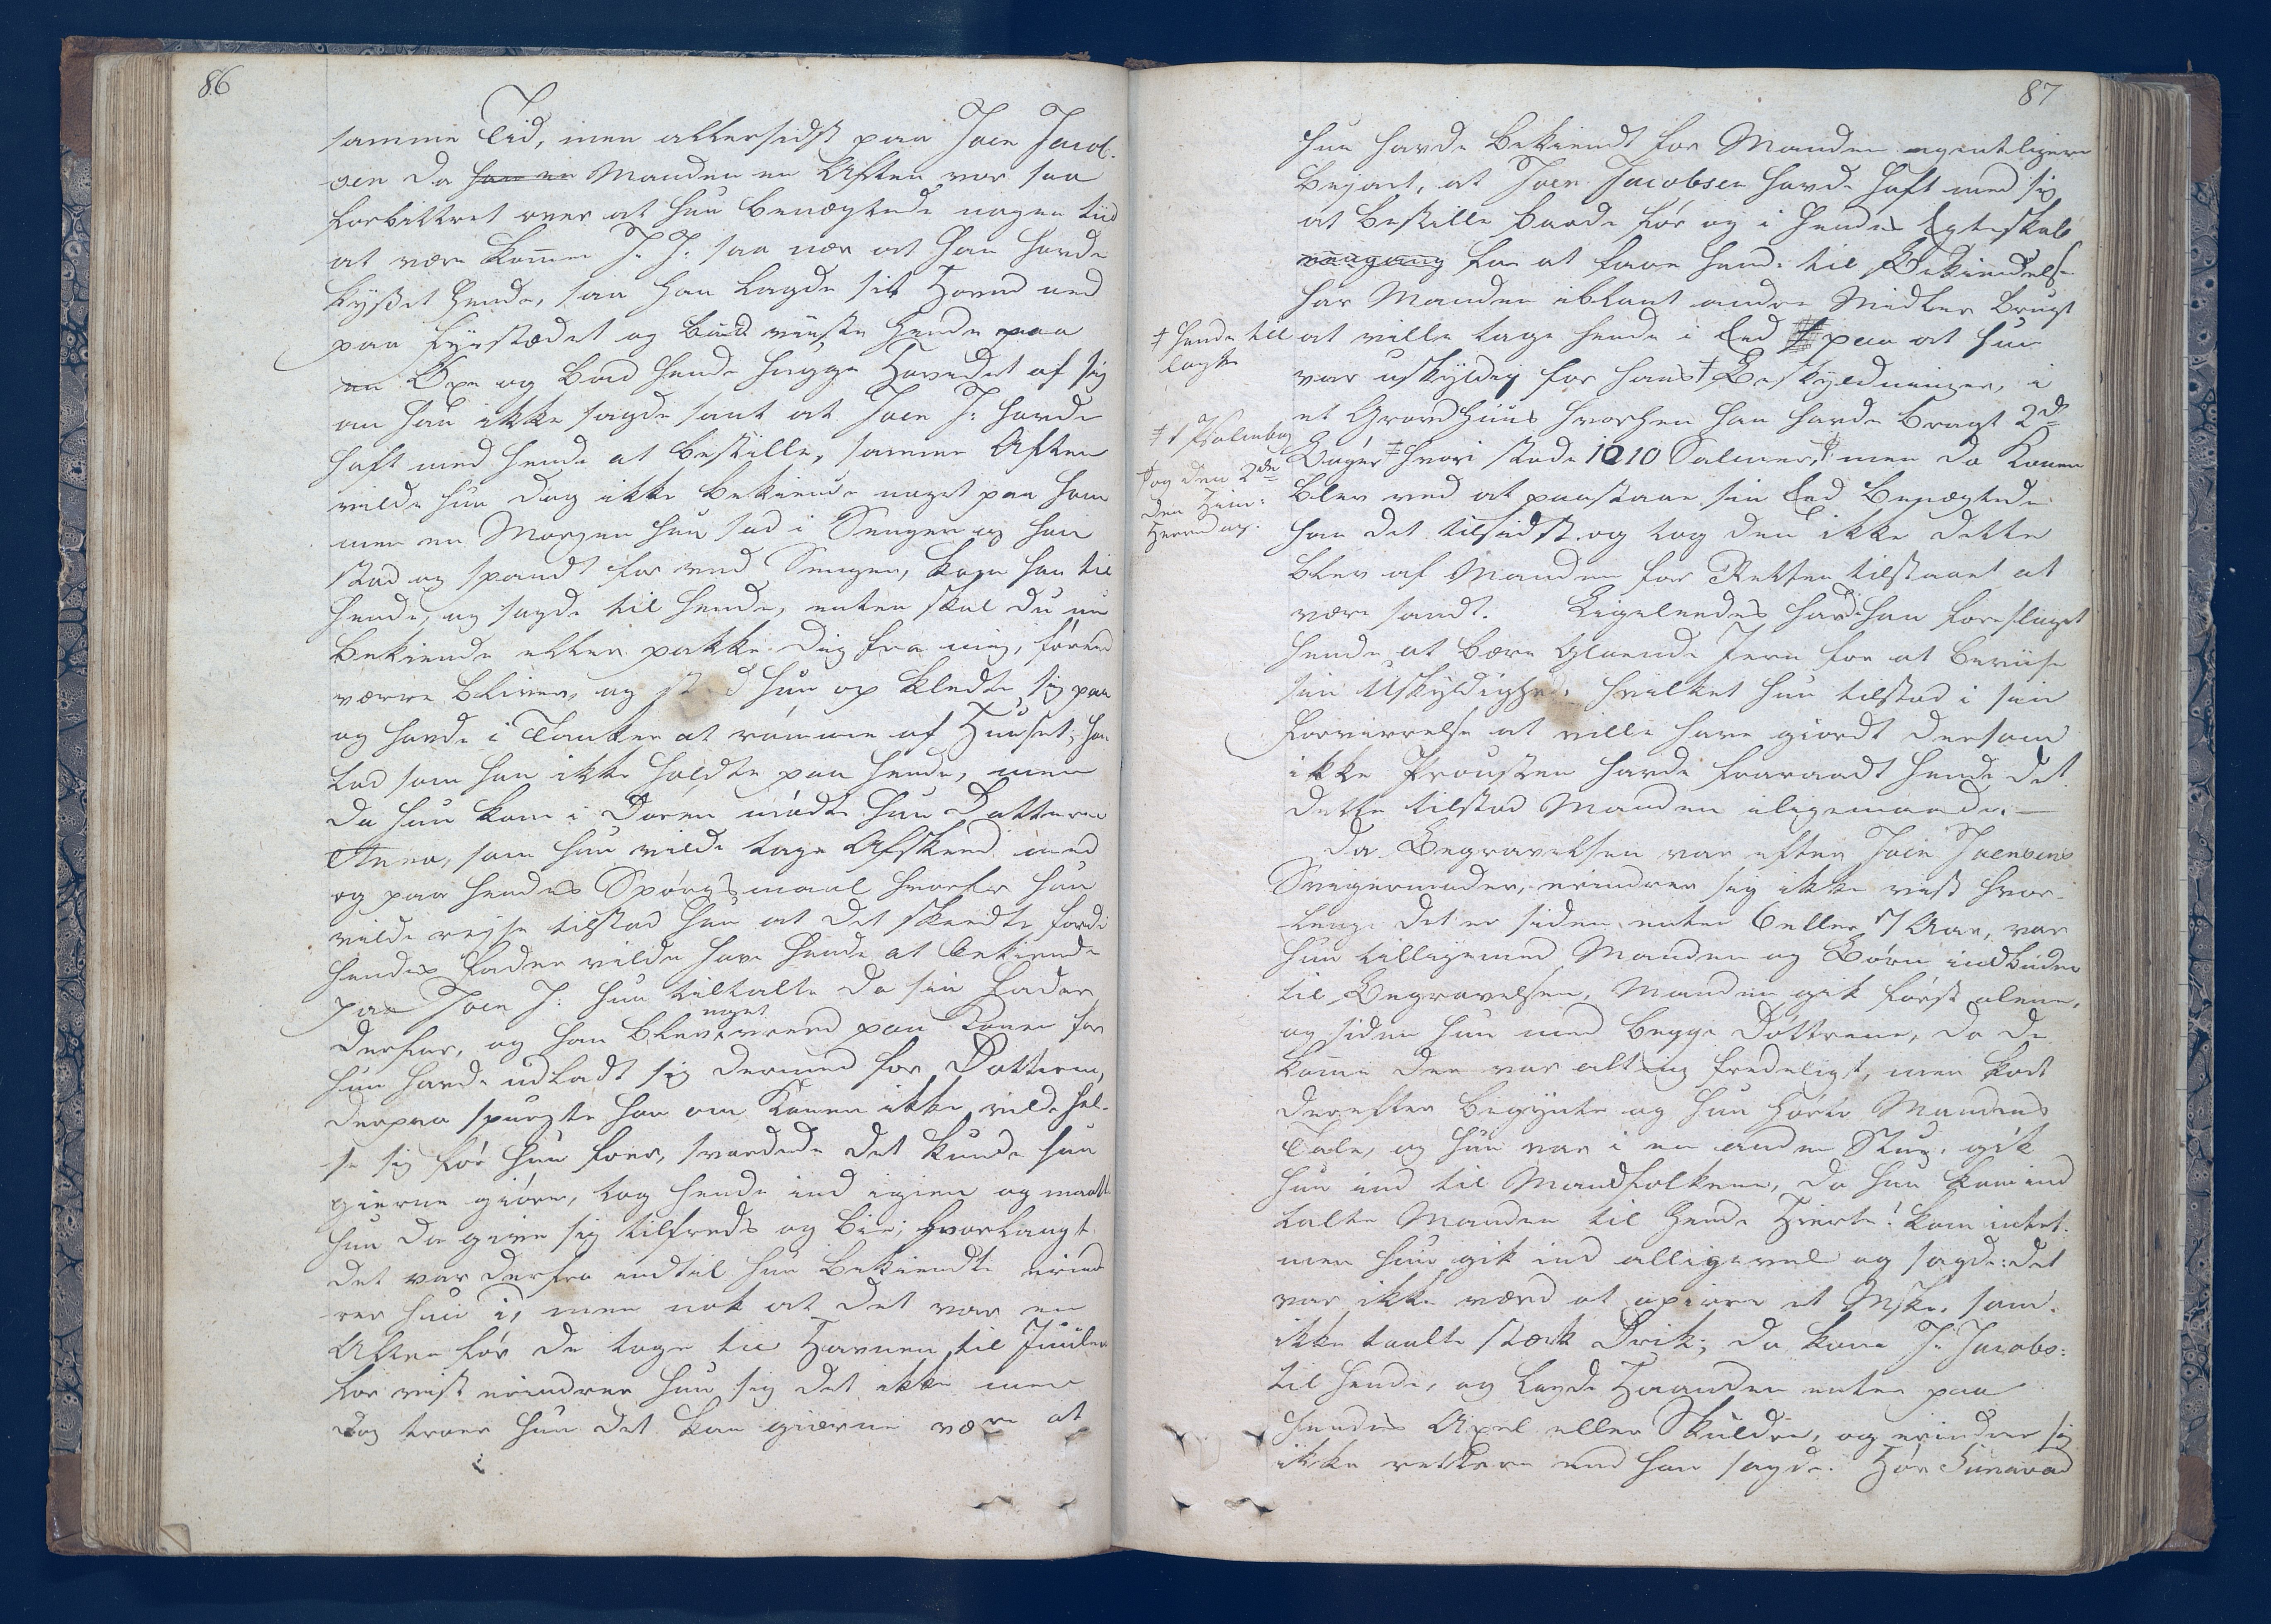 86
samme Tid, men allersidst paa Joen Jacob-
sen da han en Manden en Aften var saa
forbittret over at hun benægtede nogen tiid
at være komen J. J. saa nær at han havde
kysset hende, saa han lagde sit Hoved ned
paa Fyrstædet og bad viiste hende paa
en Øxe og bad hende hugge Hovedet af sig
om hun ikke sagde sant at Joen J: havde
haft med hende at bestille, samme Aften
vilde hun dog ikke bekiende noget paa ham
men en Morgen hun sad i Sengen og han
stod og spandt for ved Sengen, kom han til
hende, og sagde til hende, enten skal du nu
bekiende eller pakke dig fra mig, førend
værre bliver, og stod hun op kledte sig paa
og havde i Tanker at rømme af Huuset, han
lod som han ikke holdte paa hende, men
da hun kom i Døren mødte hun Datteren
Anna, som hun vilde tage Afskeed med
og paa hendes Spørgsmaal hvorfor hun
vilde rejse tilstod hun at det skeedte fordi
hendes Fader vilde have hende at bekiende
paa Joen J: hun tiltalte da sin Fader
derfor, og han blev noget vreed paa Konen for
hun havde udladt sig dermed for Datteren,
derpaa spurgte han om Konen ikke vilde hel-
se sig før hun foer, svarede det kunde hun
gierne giøre, tog hende ind igien og maatte
hun da give sig tilfreds og bie; hvorlangt
det var derfra indtil hun bekiendte erind
rer hun i, men nok at det var en
Aften før de toge til Havnen til Juulen
for vist erindrer hun sig det ikke men
dog troer hun det kan gierne være at
87
hun havde bekiendt for Manden egentligen
bejaet, at Joen Jacobsen havde haft med sig
at bestille baade før og i hendes Egteskab
engang for at faae hende til Bekiendelse
har Manden iblant andre Midler brugt
‡ hende til
lagte
at ville tage hende i Eed paa at hun
var uskyldig for hans † Beskyldninger, i
et Grovhuus hvorhen han havde bragt 2de
‡ 1 Psalmebog
Bøger ‡ hvori stode 1010 Salmer, † men da Konen
† og den 2den
den Huus:
blev ved at paastaae sin Eed benægtede
han det tilsidst og tog den ikke dette
blev af Manden for Retten tilstaaet at
være sandt. Ligeleedes havde han foreslaget
hende at bære gloende Jern for at beviise
sin Uskyldighed, hvilket hun tilstod i sin
Forvirrelse at ville have giordt dersom
ikke Prousten havde fraraadt hende det.
dette tilstod Manden iligemaade. —
Da Begravelsen var efter Joen Joensens
Svigermoder, erindrer sig ikke vist hvor-
lenge det er siden, enten 6 eller 7 Aar, var
hun tilligemed Manden og Børn indbuden
til Begravelsen, Manden gik først alene,
og siden hun med begge Døttrene, da de
kome der var alting fredeligt, men kort
derefter begynte og hun hørte Mandens
Tale, og hun var i en anden Stue, gik
hun ind til Mandfolkene, da hun kom ind
talte Manden til hende Hierte! kom intet.
men hun gik ind alligevel og sagde: det
var ikke værd at opirre et Mske, som
ikke taalte stærk Drik; da kom J: Jacobs:
til hende, og lagde Haanden enten paa
hendes Axel eller Skulder, og erindrer sig
ikke rettere end han sagde. Hør Sunava